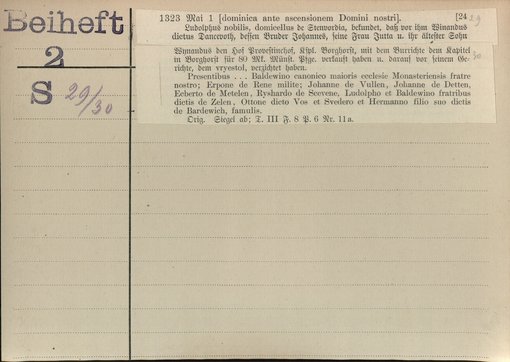 Beiheft
2
S 29/30
1323 Mai 1 [dominica ante ascensionem Domini nostri]. [24
29
Ludolphus nobilis, domicellus de Stenvordia, bekundet, daß vor ihm Winandus
dictus Dancroth, dessen Bruder Johannes, seine Frau Jutta u. ihr ältester Sohn
Wynandus den Hof Provestinchof, Kspl. Borghorst, mit dem Burrichte dem Kapitel
in Borghorst für 80 Mk. Münst. Pfge. verkauft haben u. darauf vor seinem Ge-
30
richte, dem vryestol, verzichtet haben.
Presentibus . . . Baldewino canonico maioris ecclesie Monasteriensis fratre
nostro; Erpone de Rene milite; Johanne de Vullen, Johanne de Detten,
Ecberto de Metelen, Ryshardo de Scevene, Ludolpho et Baldewino fratribus
dictis de Zelen, Ottone dicto Vos et Svedero et Hermanno filio suo dictis
de Bardewich, famulis.
Orig. Siegel ab; T. III F. 8 P. 6 Nr. 11a.